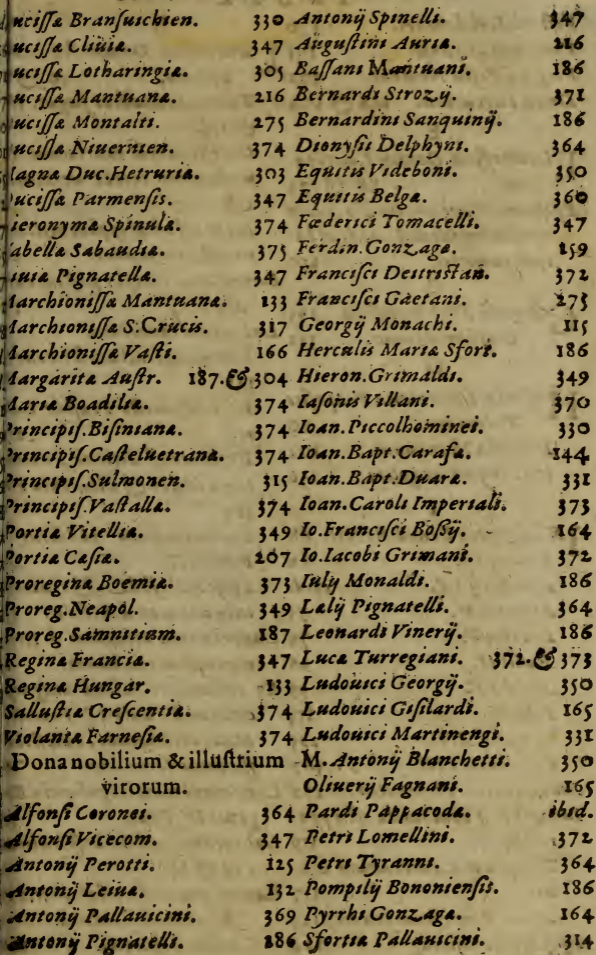 ucissæ Bransuichien. 330
ucissæ Cliuiæ. 347
ucissæ Lotharingiæ. 305
ucissæ Mantuanæ. 216
ucissæ Montalti. 275
ucissæ Niuernien. 374
agnæ Duc.Hetruriæ. 303
ucissæ Parmensis. 347
ieronymæ Spinulæ. 374
abellæ Sabaudiæ. 375
iuiæ Pignatellæ. 347
archionissæ Mantuanæ. 133
archionissæ S.Crucis. 317
archionissæ Vasti. 166
argaritæ Austr. 187.& 304
ariæ Boadiliæ. 374
Principis.Bisinianæ. 374
Principis.Casteluetranæ. 374
Principis.Sulmonen. 315
Principis.Vastallæ. 374
Portiæ Vitelliæ. 349
Portiæ Cæsiæ. 267
Proreginæ Boemiæ. 373
Proreg.Neapol. 349
Proreg.Samnitium. 187
Reginæ Franciæ. 347
Reginæ Hungar. 133
Sallustiæ Crescentiæ. 374
Violantæ Farnesiæ. 374
Dona nobilium & illustrium
virorum.
Alfonsi Coronei. 364
Alfonsi Vicecom. 347
Antonij Perotti. 125
Antonij Leiuæ. 132
Antonij Pallauicini. 369
Antonij Pignatelli. 186
Antonij Spinelli. 347
Augustini Auriæ. 216
Bassani Mantuani. 186
Bernardi Strozij. 371
Bernardini Sanquinij. 186
Dionysii Delphyni. 364
Equitis Videboni. 350
Equitis Belgæ. 360
Fœderici Tomacelli. 347
Ferdin.Gonzagæ. 159
Francisci Deitristan. 372
Francisci Gaetani. 275
Georgij Monachi. 115
Herculis Mariæ Sfort. 186
Hieron.Grimaldi. 349
Iasonis Villani. 370
Ioan.Piccolhominei. 330
Ioan.Bapt.Carafæ. 144
Ioan.Bapt.Duaræ. 331
Ioan.Caroli Imperiali. 373
Io.Francisci Boßij. 164
Io.Iacobi Grimani. 372
Iulij Monaldi. 186
Lælij Pignatelli. 364
Leonardi Vinerij. 186
Lucæ Turregiani. 372.& 373
Ludouici Georgij. 350
Ludouici Gisilardi. 165
Ludouici Martinengi. 331
M.Antonij Blanchetti. 350
Oliuerij Fagnani. 165
Pardi Pappacodæ. ibid.
Petri Lomellini. 372
Petri Tyranni. 364
Pompilij Bononiensis. 186
Pyrrhi Gonzagæ. 164
Sfortiæ Pallauicini. 314